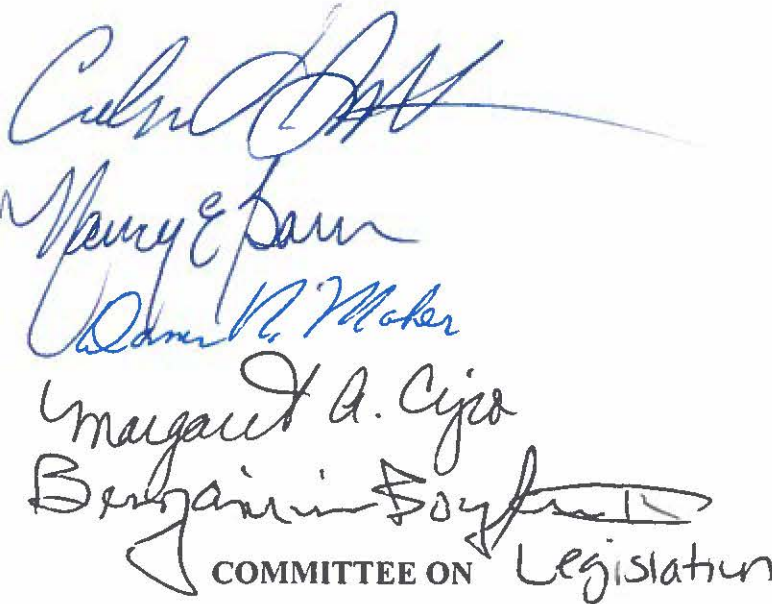 Nancy E Barr
Damon R. Maher
Margaret A. Cuzo
Benjamin Boykin II
COMMITTEE ON Legislation